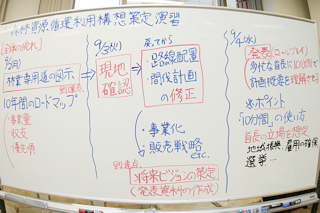 森林資源循環利用構想策定演習
[全体の流れ]
9/2(月)
林業専用道の図示
到達点
10年間のロードマップ
・事業量
・収支
・優先順
9/3(火)
現地
確認
戻ってから
・路線配置
・間伐計画
の修正
・事業化
・販売戦略
etc.
到達点
将来ビジョンの策定
(発表資料の作成)
9/4(水)
発表(ロールプレイ)
多忙な首長に10分間で
計画概要を理解させる
※ポイント
「10分間」の使い方
首長の立場を想定
地域振興、雇用の確保
選挙…